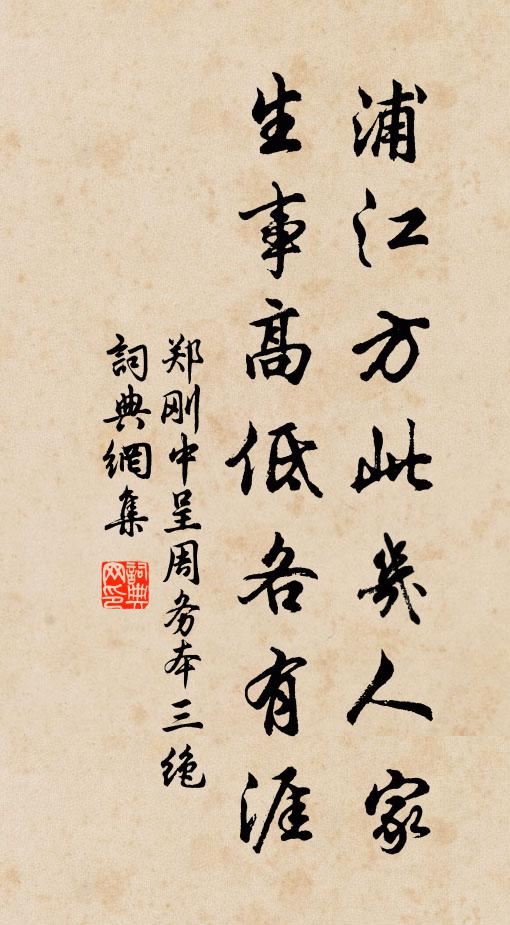 浦江方此几人家
生事高低各有涯
郑刚中呈周务本三绝
詞典網集
詞典网印